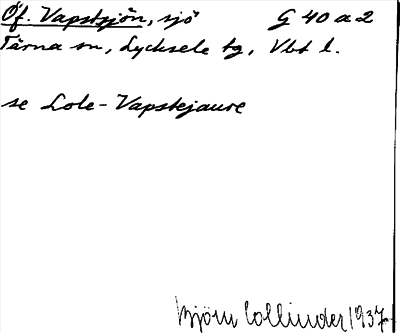 Öf. Vapstsjön, sjö G 40 a 2
Tärna sn, Lycksele tg, Vbt l.
se Lole-Vapstejaure
Björn Collinder 1937